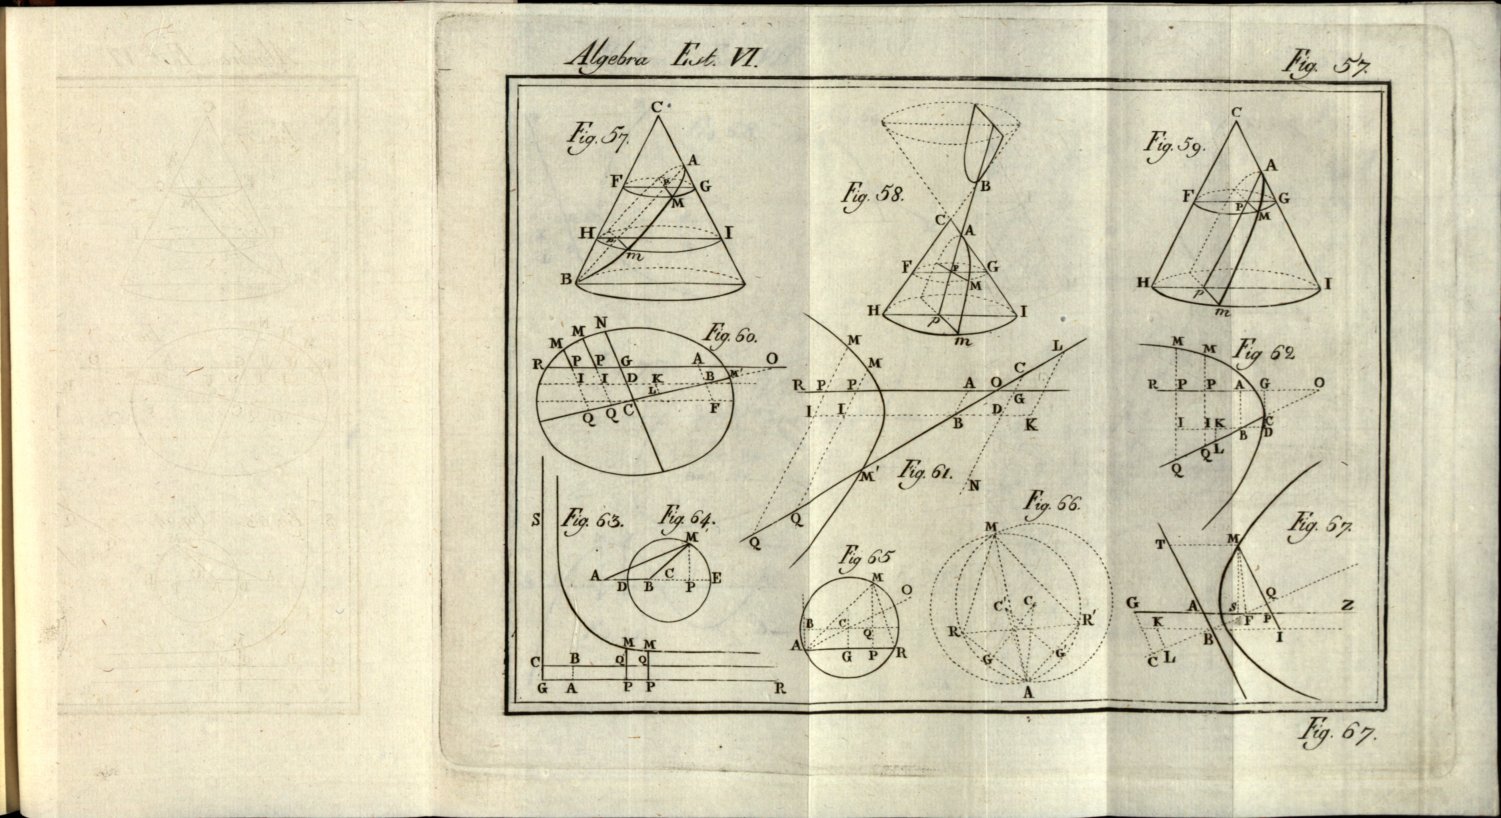 Algebra Est. VI.
Fig. 57.
Fig. 57.
C
A
F
G
P
M
H
I
m
B
Fig. 58.
B
C
A
F
G
P
M
H
I
p
m
Fig. 59.
C
A
F
G
P
M
H
I
p
m
Fig. 60.
M M N
R P P G A O
I I D K B M'
L
Q Q C F
Fig. 61.
M
M
L
C
R P P A O
G
I I B D K
M'
N
Q
Q
Fig 62
M M
R P P A G O
I I K C
B D
Q L
Q
Fig. 63.
S
M M
C B Q Q
G A P P R
Fig. 64.
M
A D B C P E
Fig 65
M
O
B C Q
A G P R
Fig. 66.
M
C' C
R R'
G G
A
Fig. 67.
T M
Q
G A S F P Z
K B I
C L
Fig. 67.